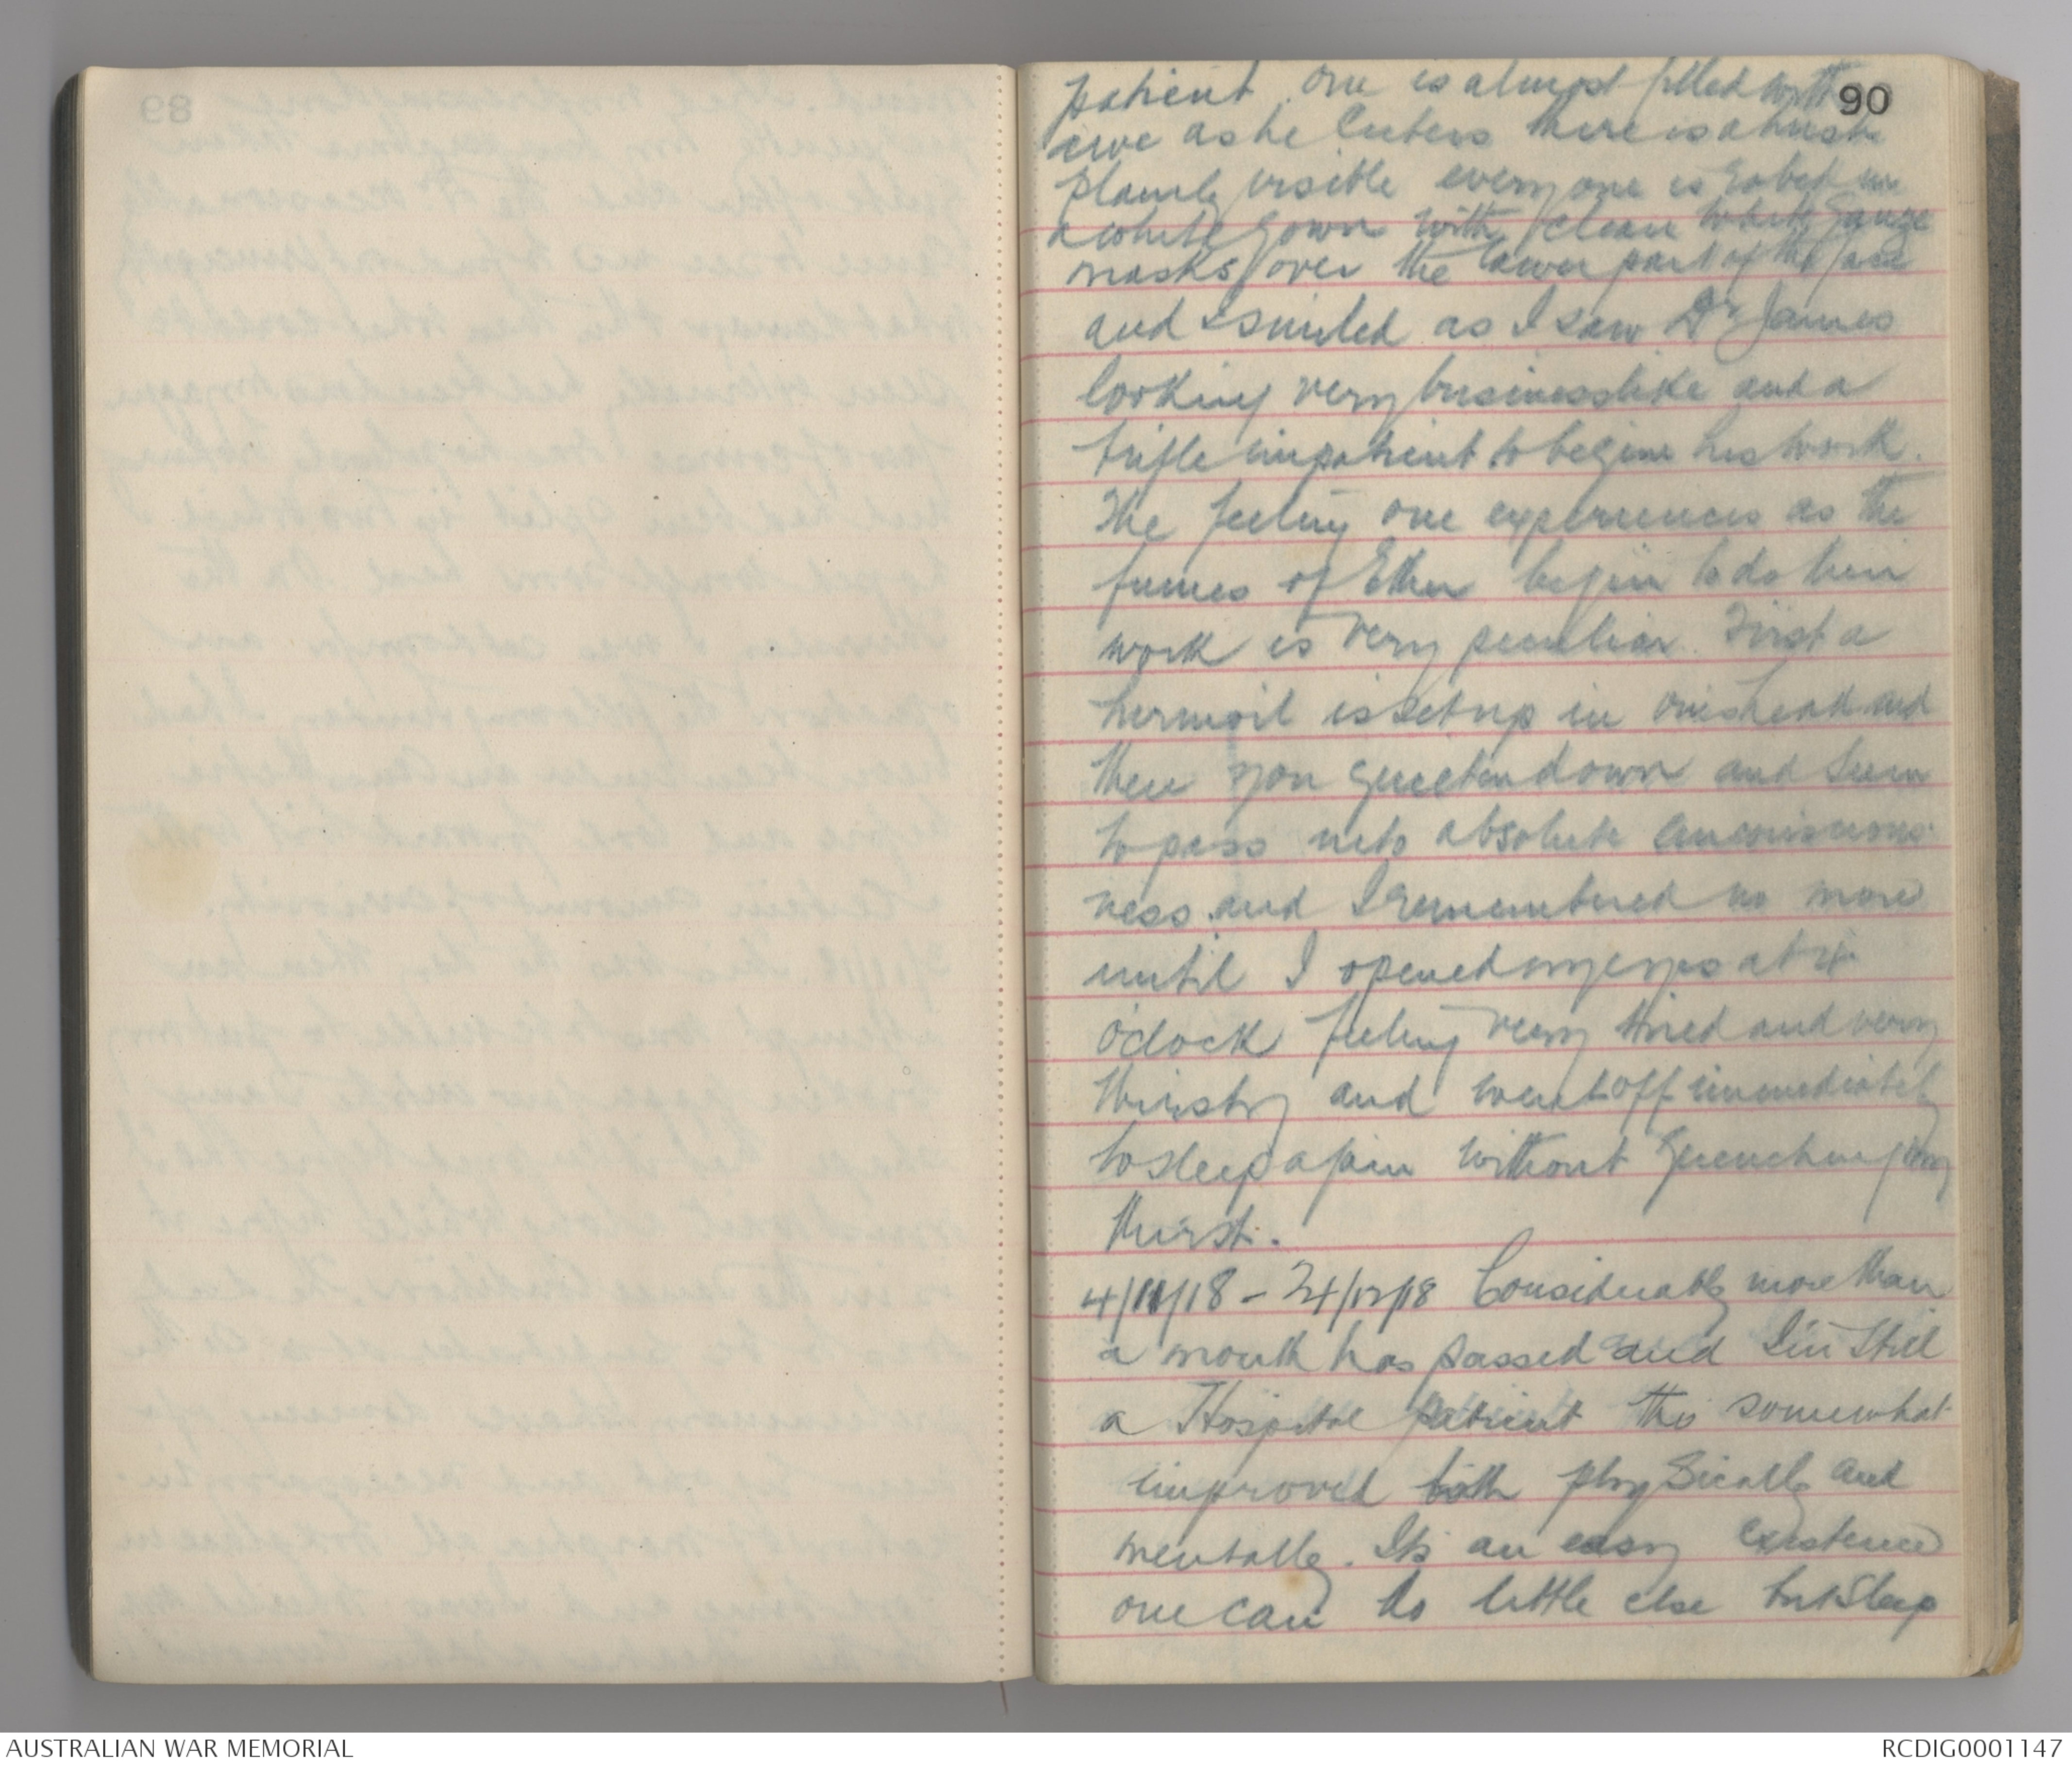 90
patient. One is almost filled with
awe as he enters there is a hush
plainly visible everyone is robed in
a white gown with clean white gauge
masks over the lower part of the face
and I smiled as I saw Dr James
looking very businesslike and a
trifle impatient to begin his work.
The feeling one experiences as the
fumes of Ether begin to do their
work is very peculiar. First a
turmoil is set up in ones head and
then you quieten down and seem
to pass into absolute unconscious
ness and I remembered no more
until I opened my eyes at 4
o'clock feeling very tired and very
thirsty and went off immediately
to sleep again without quenching my
thirst.
4/11/18 - 24/12/18 Considerably more than
a month has passed and I'm still
a Hospital patient tho somewhat
improved both physically and
mentally. Its an easy existence
one can do little else but sleep
AUSTRALIAN WAR MEMORIAL
RCDIG0001147